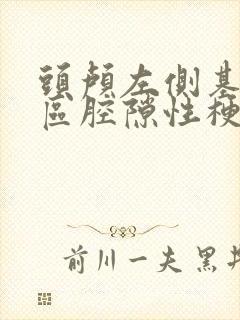 頭顱左側基
區腔隙性梗
前川一夫 黑